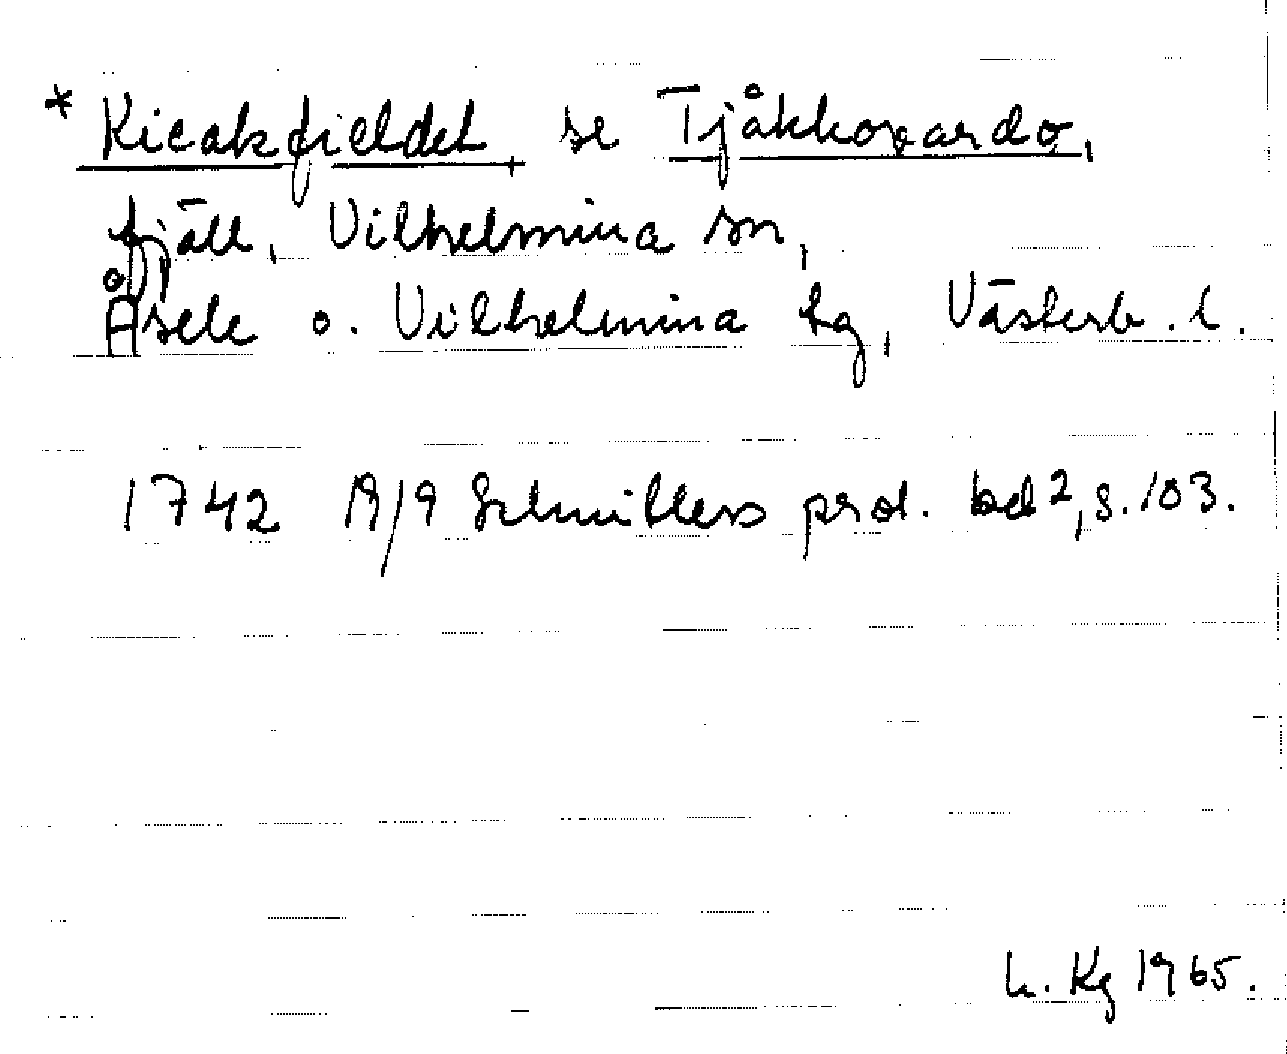 * Kicakfieldet, se Tjåkkovardo,
fjäll, Vilhelmina sn,
Åsele o. Vilhelmina tg, Västerb. l.
1742 19/9 Schnitlers prot. bd 2, s. 103.
h. Kg 1965.